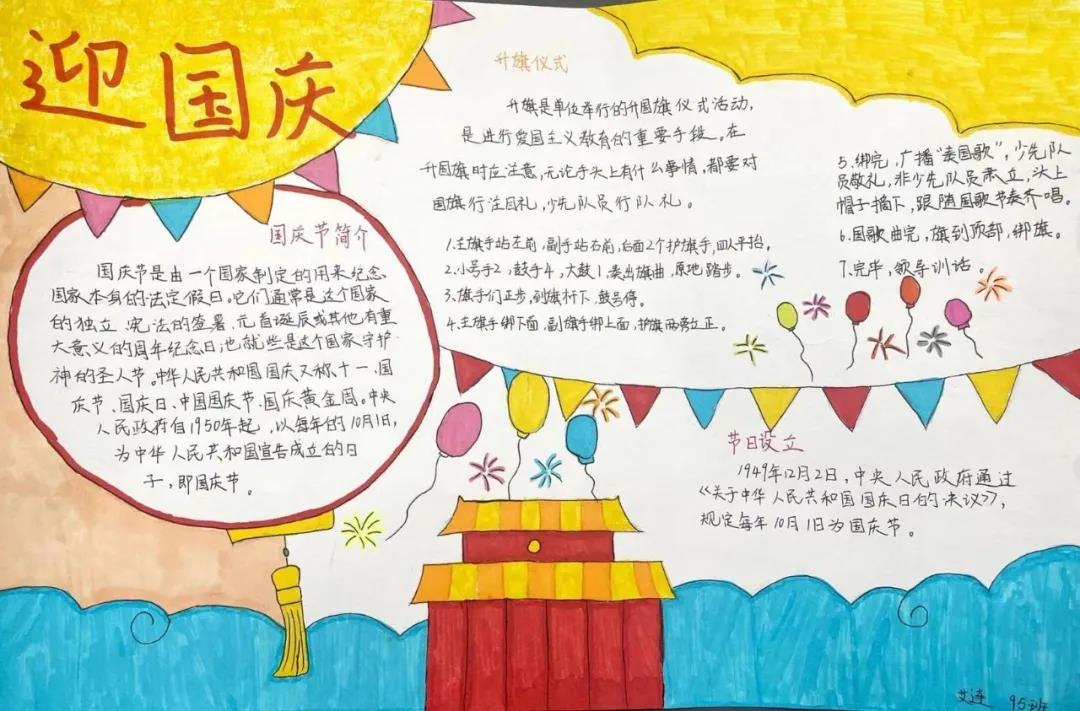 迎国庆
国庆节简介
国庆节是由一个国家制定的用来纪念
国家本身的法定假日。它们通常是这个国家
的独立、宪法的签署、元首诞辰或其他有重
大意义的周年纪念日;也就些是这个国家守护
神的圣人节。中华人民共和国国庆又称十一、国
庆节、国庆日、中国国庆节、国庆黄金周。中央
人民政府自1950年起,以每年的10月1日,
为中华人民共和国宣告成立的日
子,即国庆节。
升旗仪式
升旗是单位奉行的升国旗仪式活动,
是进行爱国主义教育的重要手段。在
升国旗时应注意,无论手头上有什么事情,都要对
国旗行注目礼,少先队员行队礼。
1.主旗手站左前,副手站右前,后面2个护旗手,四人平抬。
2.小号手2,鼓手4,大鼓1,奏出旗曲,原地踏步。
3.旗手们正步,到旗杆下,鼓号停。
4.主旗手绑下面,副旗手绑上面,护旗两旁立正。
5.绑完,广播“奏国歌”,少先队
员敬礼,非少先队员肃立,头上
帽子摘下,跟随国歌节奏齐唱。
6.国歌曲完,旗到顶部,绑旗。
7.完毕,领导训话。
节日设立
1949年12月2日,中央人民政府通过
《关于中华人民共和国国庆日的决议》,
规定每年10月1日为国庆节。
95班